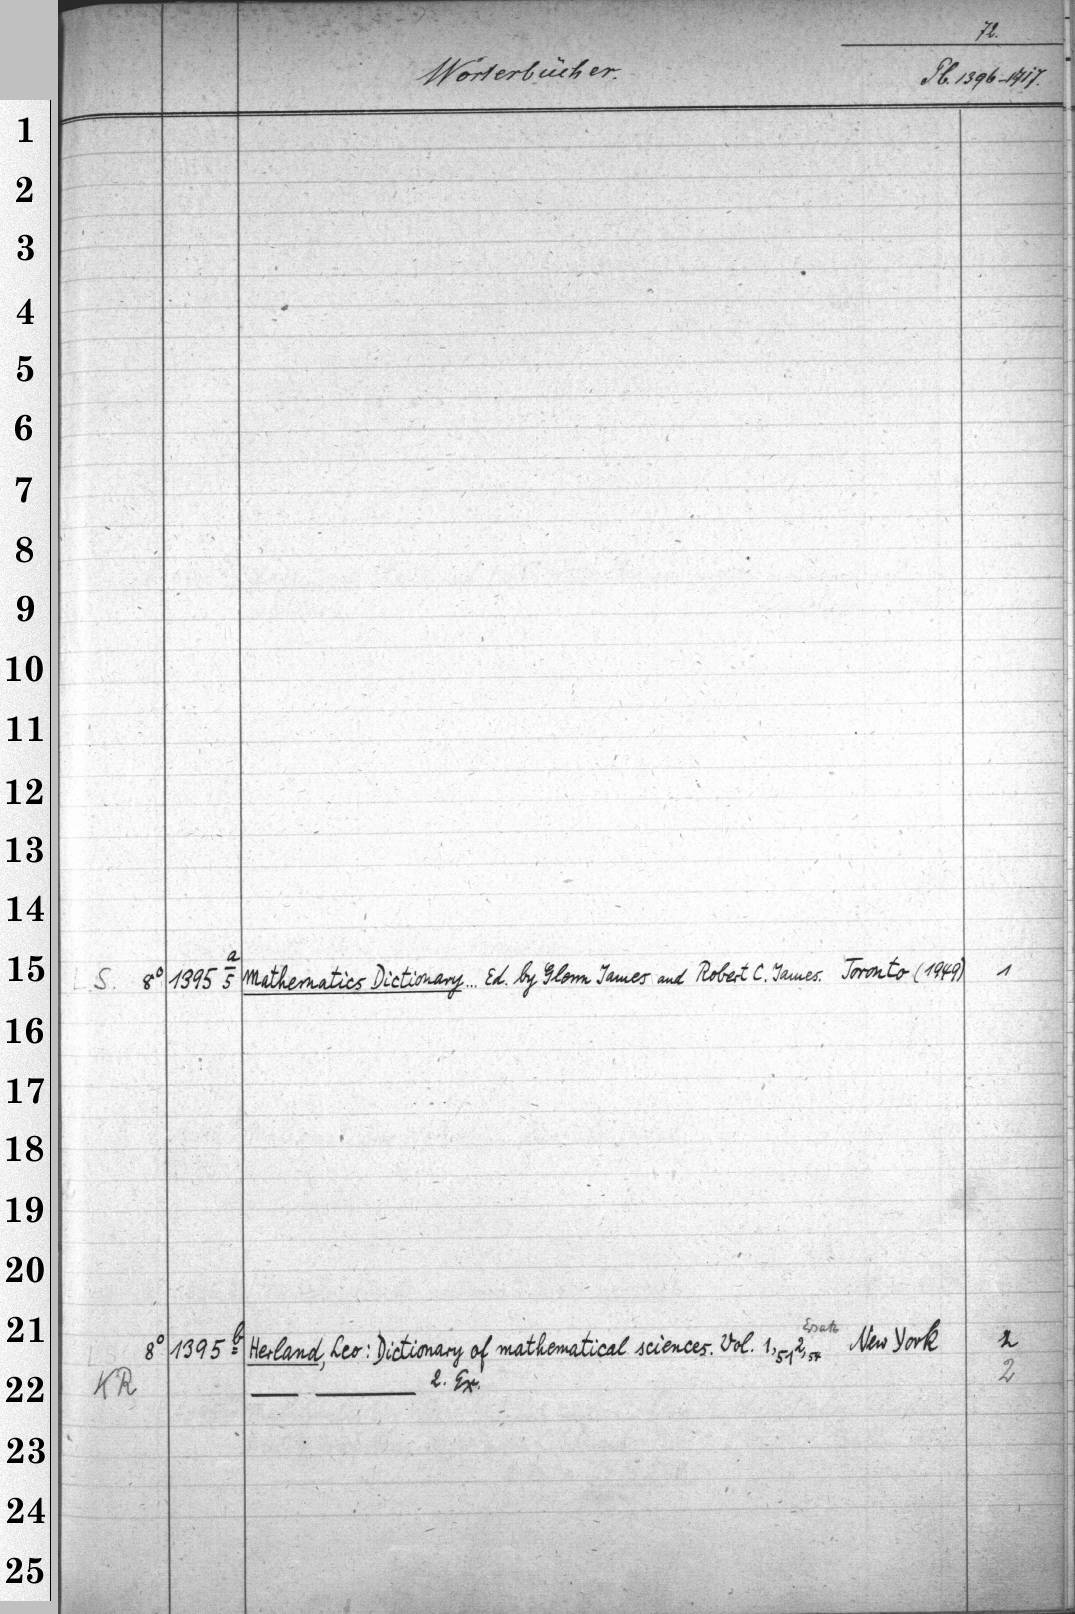 72.
Wörterbücher. Pb. 1396-1417.
1
2
3
4
5
6
7
8
9
10
11
12
13
14
15 L S. 8° 1395 a/5 Mathematics Dictionary... Ed. by Glenn James and Robert C. James. Toronto (1949) 1
16
17
18
19
20
21 8° 1395 b Herland, Leo: Dictionary of mathematical sciences. Vol. 1,51 2,54 Ersatz New York 2
22 KR — — 2. Ex. 2
23
24
25